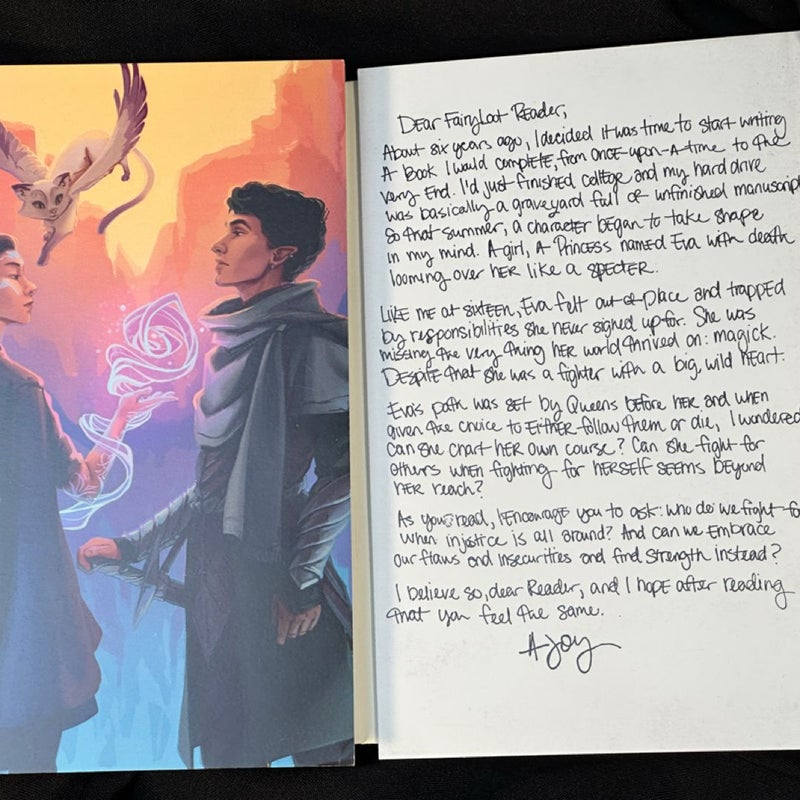 Dear FairyLoot Reader,
About six years ago, I decided it was time to start writing
A Book I would complete, from once-upon-a-time to the
very End. I'd just finished college and my hard drive
was basically a graveyard full of unfinished manuscript
So that summer, a character began to take shape
in my mind. A girl, A Princess named Eva with death
looming over her like a specter.
Like me at sixteen, Eva felt out-of-place and trapped
by responsibilities she never signed up for. She was
missing the very thing her world thrived on: magick.
Despite that she was a fighter with a big, wild heart.
Eva's path was set by Queens before her and when
given the choice to either follow them or die, I wondered
can she chart her own course? Can she fight for
others when fighting for herself seems beyond
her reach?
As you read, I encourage you to ask: who do we fight for
when injustice is all around? And can we embrace
our flaws and insecurities and find strength instead?
I believe so, dear Reader, and I hope after reading
that you feel the same.
A. Joy